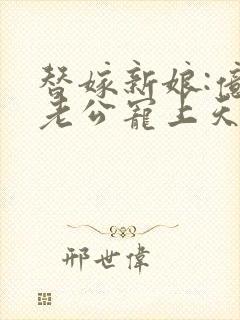 替嫁新娘:億
老公寵上天
邢世偉